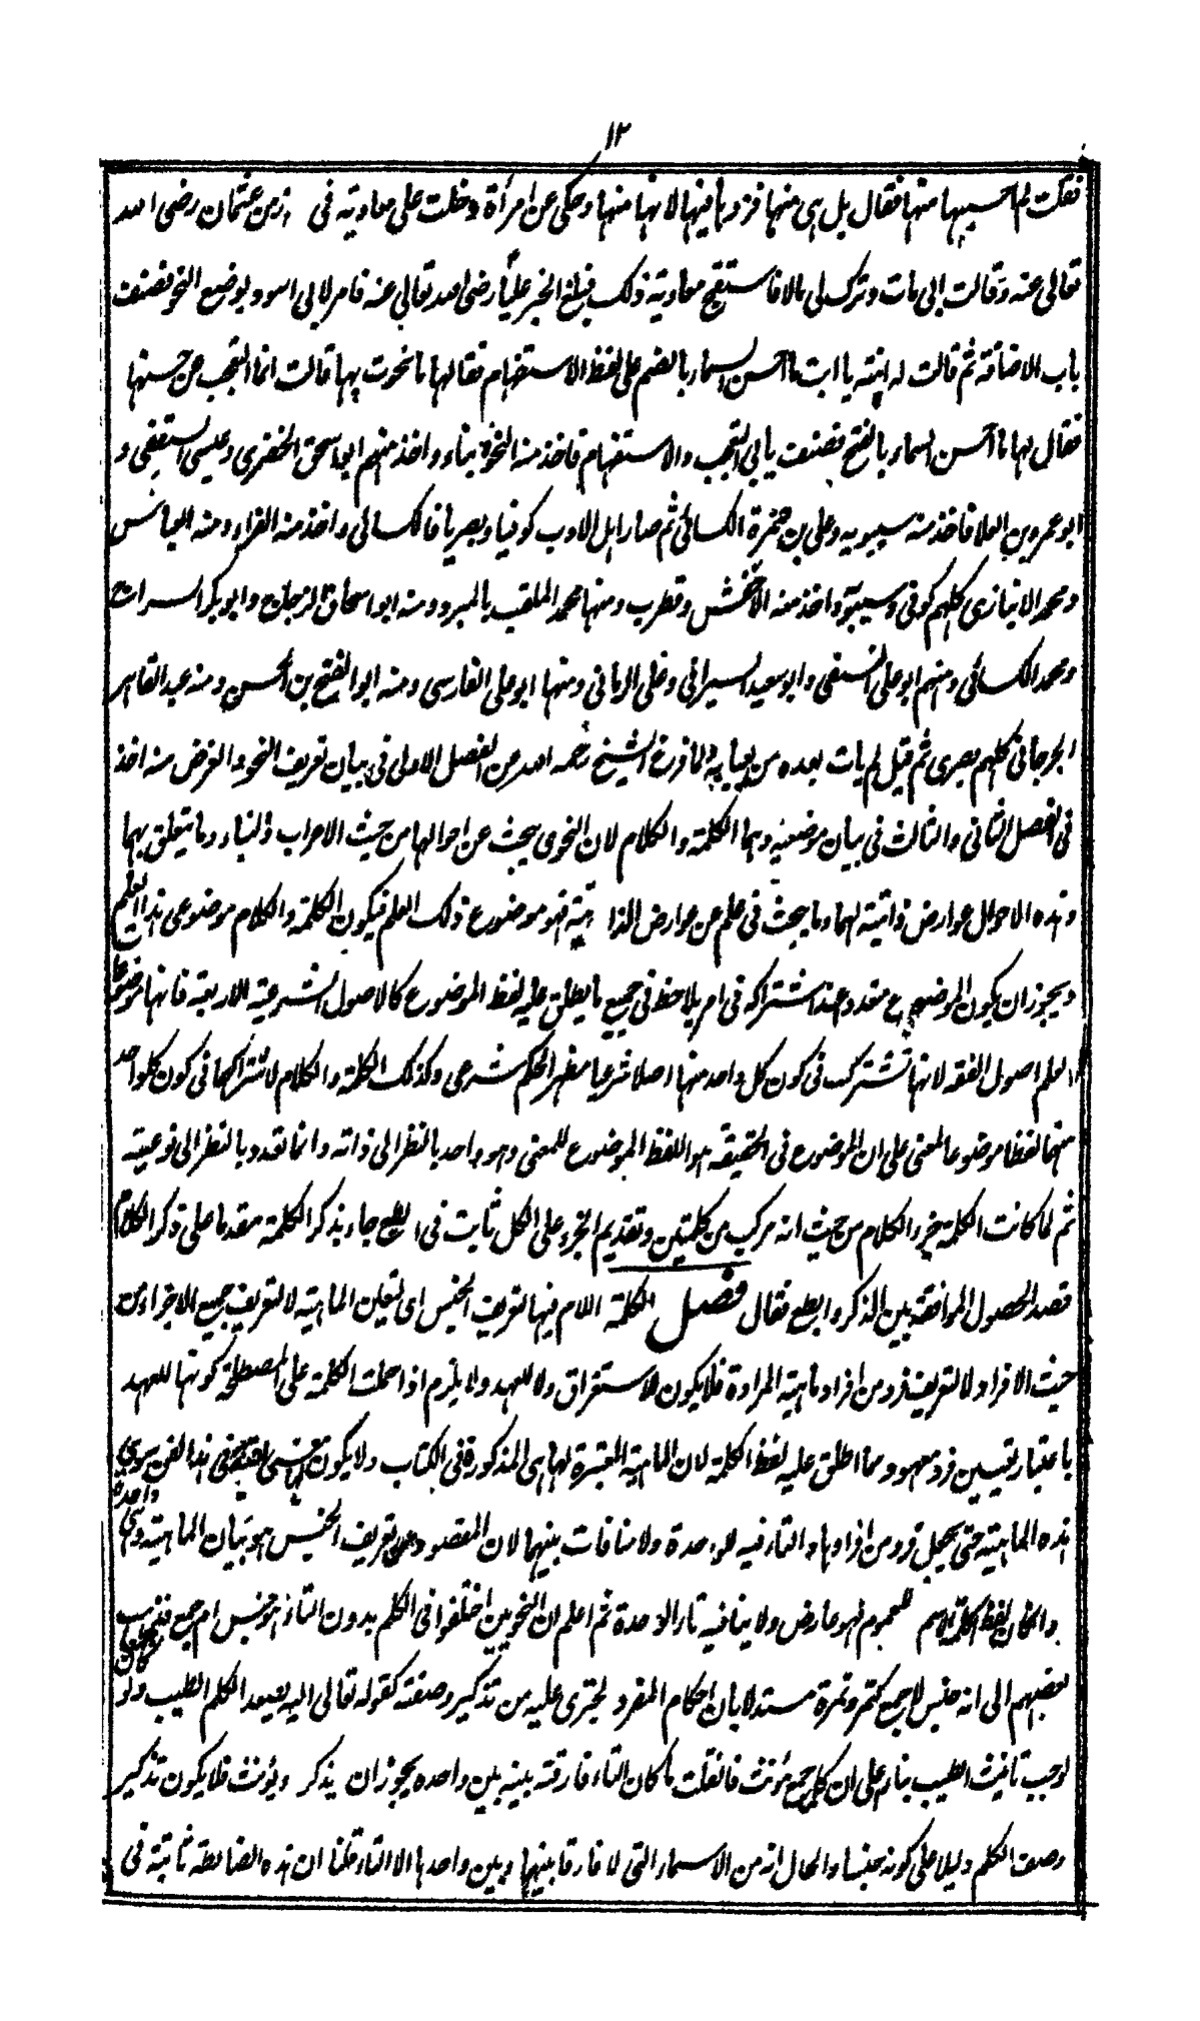 ١٢
فقلت لم احسبها منها فقال بل هى منها فزدها فيها لانها منها وحكى عن امرأة دخلت على معاوية فى زمن عثمان رضى الله
تعالى عنه وقالت ابى مات وترك لى مالا فاستقبح معاوية ذلك فبلغ الخبر علياً رضى الله تعالى عنه فامر لابى اسود بوضع النحو فصنف
باب الاضافة ثم قالت له ابنته يا ابت ما احسن السماء بالضم على لفظ الاستفهام فقالها ما نحوت بها قالت انما اتعجب عن حسنها
فقال لها ما احسن السماء بالفتح فصنف بابى التعجب والاستفهام فاخذ منه النحو ابناءه واخذ منهم ابو اسحق الحضرمى وعيسى الثقفى و
ابو عمرو بن العلا فاخذ منه سيبويه وعلى بن حمزة الكسائى ثم صار اهل الادب كوفيا وبصريا فالكسائى واخذ منه الفراء ومنه العباس
ومحمد الانبارى كلهم كوفى وسيبويه واخذ منه الاخفش وقطرب ومنها محمد الملقب بالمبرد ومنه ابو اسحاق الزجاج وابو بكر السراج
ومحمد الكسائى ومنهم ابو على النسفى وابو سعيد السيرافى وعلى الرمانى ومنها ابو على الفارسى ومنه ابو الفتح بن الحسن ومنه عبد القاهر
الجرجانى كلهم بصرى ثم قيل لم يات بعده من يعبأ به ولما فرغ الشيخ رحمه الله من الفصل الاول فى بيان تعريف النحو والغرض منه اخذ
فى الفصل الثانى والثالث فى بيان موضوعيه وهما الكلمة والكلام لان النحوى يبحث عن احوالهما من حيث الاعراب والبناء وما يتعلق بهما
وهذه الاحوال عوارض ذاتية لهما وما يبحث فى علم عن عوارض الذاتية فهو موضوع ذلك العلم فيكون الكلمة والكلام موضوعى هذا العلم
ويجوز ان يكون الموضوع متعددا عند اشتراكه فى امر يلاحظ فى جميع ما يطلق عليه لفظ الموضوع كالاصول الشرعية الاربعة فانها موضوعة
لعلم اصول الفقه لانها تشترك فى كون كل واحد منها اصلا شرعيا مظهر الحكم شرعى وكذلك الكلمة والكلام لاشتراكهما فى كون كلواحد
منهما لفظا موضوعا لمعنى على ان الموضوع فى الحقيقة هو اللفظ الموضوع للمعنى وهو واحد بالنظر الى ذاته وانما تعدد بالنظر الى نوعيته
ثم لما كانت الكلمة جزء الكلام من حيث انه مركب من كلمتين وتقديم الجزء على الكل ثابت فى الطبع جاء بذكر الكلمة مقدما على ذكر الكلام
قصد الحصول الموافقة بين الذكر والطبع فقال فصل الكلمة اللام فيها لتعريف الجنس اى لتعيين الماهية لا لتعريف جميع الاجزاء من
حيث الافراد ولا لتعريف فرد من افراد ماهية المرادة فلا يكون للاستغراق ولا للعهد ولا يلزم اذا حملت الكلمة على المصطلحة كونها للعهد
باعتبار تعيين فرد معهود مما اطلق عليه لفظ الكلمة لان الماهية المعتبرة لها هى المذكورة فى الكتاب ولا يكون فى هذا الفن سوى
هذه الماهية حتى يجعل فرد من افرادها والتاء فيه للوحدة ولا منافات بينهما لان المقصود من تعريف الجنس هو بيان الماهية وهى واحدة
وان كان لفظ الكلمة للعموم فهو عارض ولا ينافيه تاء الوحدة ثم اعلم ان النحويين اختلفوا فى الكلم بدون التاء اهو جنس ام جمع فذهب
بعضهم الى انه جنس لا جمع كتمر وتمرة مستدلا بان احكام المفرد يجرى عليه من تذكير وصفته كقوله تعالى اليه يصعد الكلم الطيب ولو كان جمعا
لوجب تانيث الطيب بناء على ان كل جمع مؤنث فان قلت ما كان التاء فارقة بينه وبين واحده يجوز ان يذكر ويؤنث فلا يكون تذكير
وصف الكلم دليلا على كونه جنسا والحال انه من الاسماء التى لا فارق بينها وبين واحدها الا التاء قلنا ان هذه الضابطة ثابتة فى